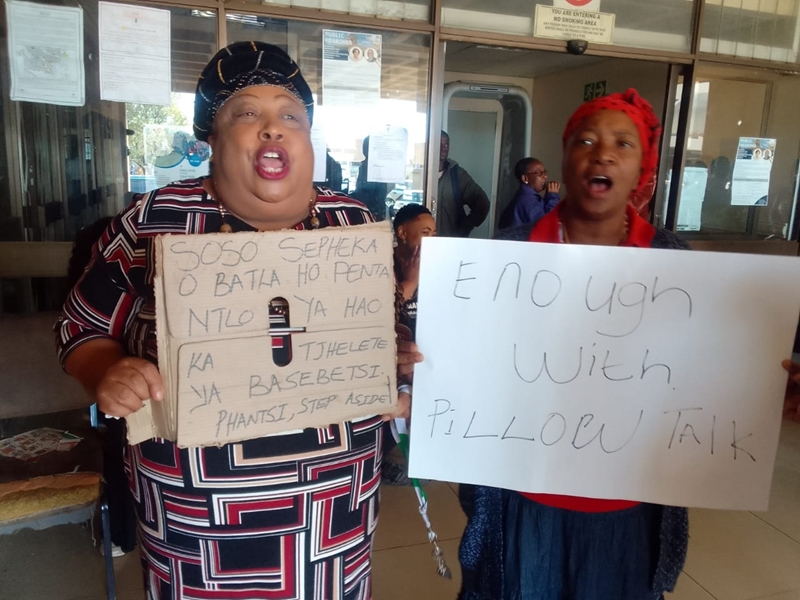 YOU ARE ENTERING A
NO SMOKING AREA
PUBLIC
SOSO SEPHEKA
O BATLA HO PENTA
NTLO YA HAO
KA TJHELETE
YA BASEBETSI.
PHANTSI, STEP ASIDE
Enough
With
PILLOW Talk